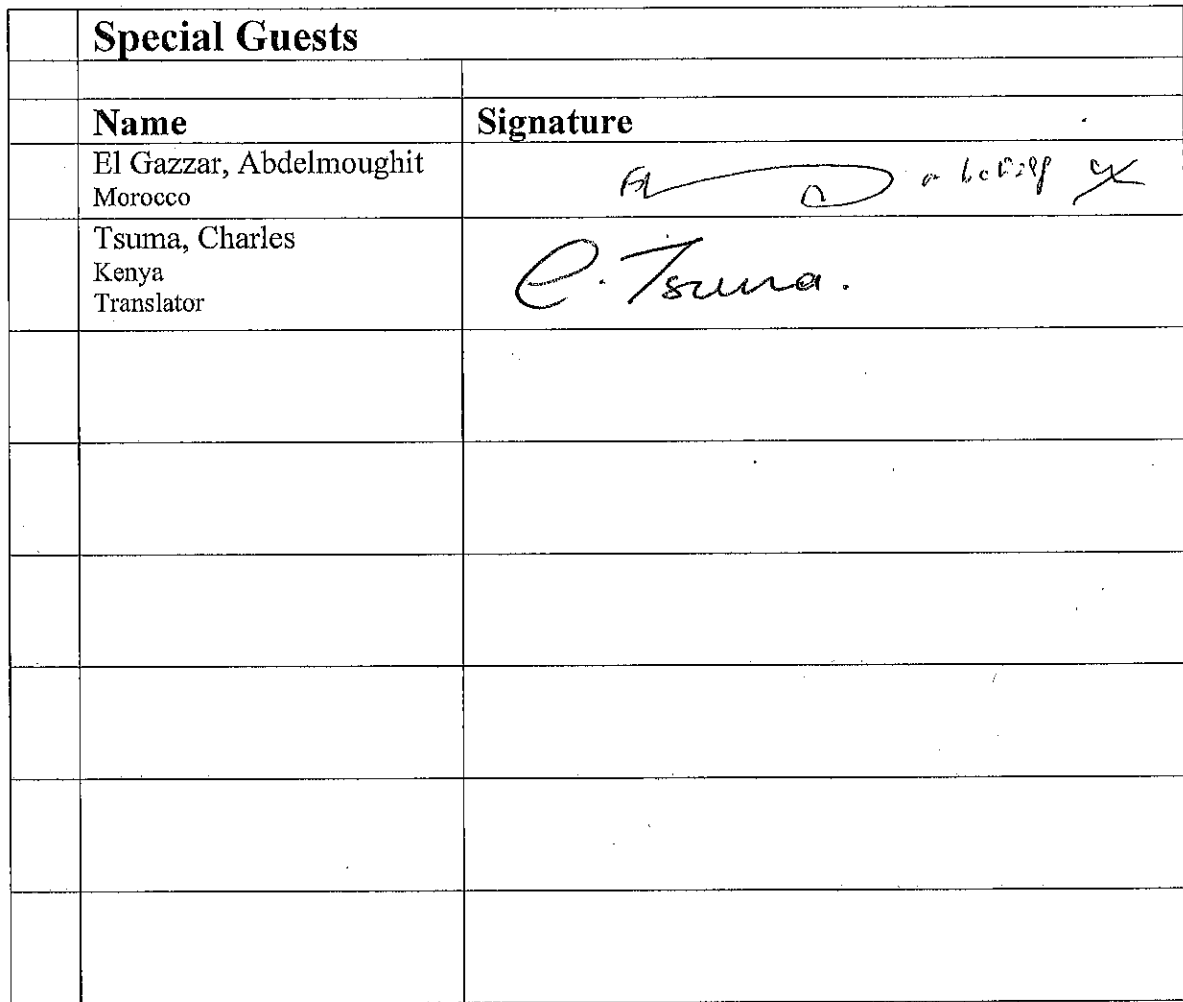 Special Guests
Name Signature
El Gazzar, Abdelmoughit
Morocco
Tsuma, Charles
Kenya
Translator
C. Tsuma.